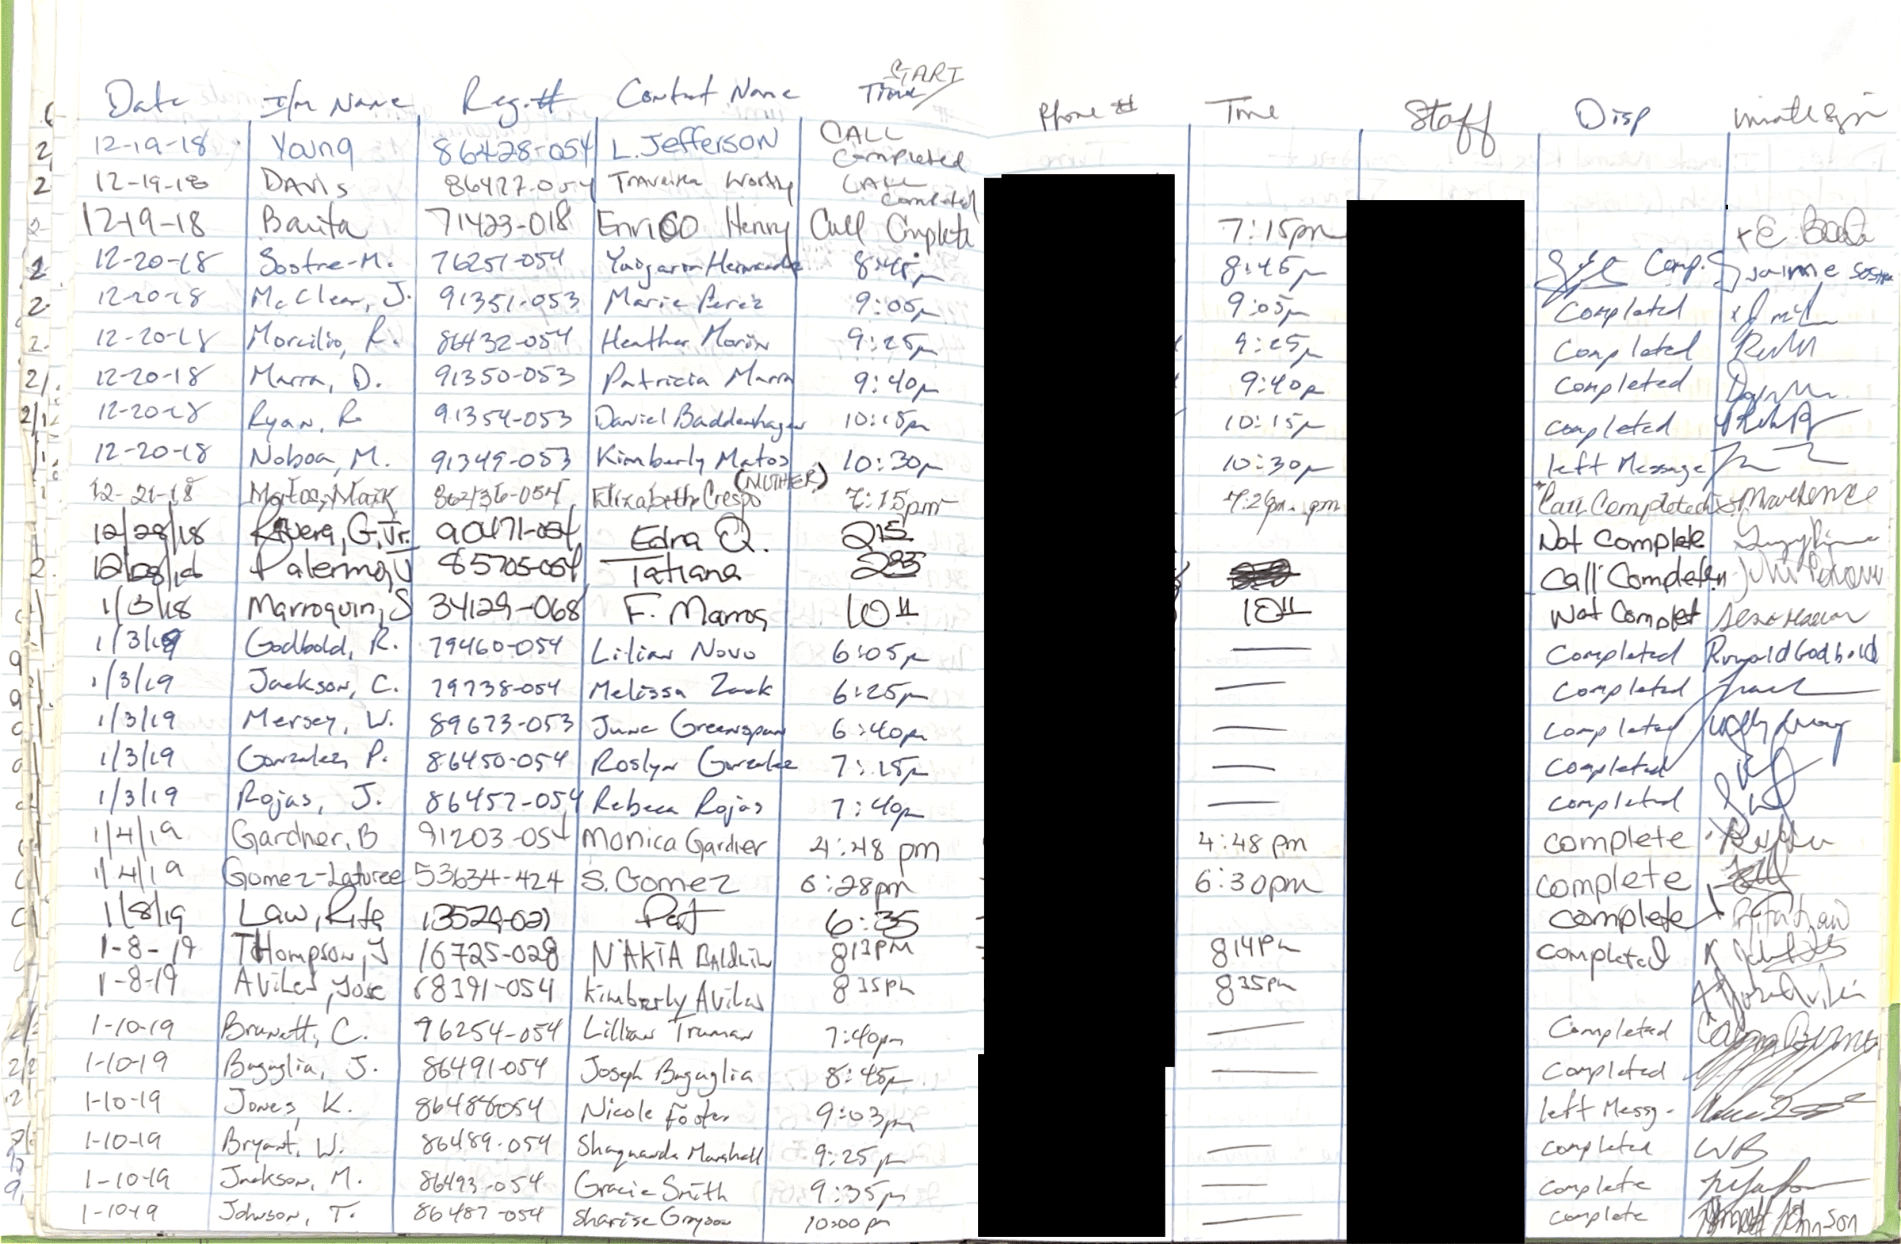 Date I/m Name Reg.# Contact Name START Time Phone # Time Staff Disp
12-19-18 Young 86428-054 L. Jefferson CALL Completed
12-19-18 Davis 86427-054 Worthy CALL Completed
12-19-18 71423-018 Enrico Henry Call Cmplete 7:15pm
12-20-18 Sostre-M. 76251-054 8:45p 8:45p Comp. Jaime Sostre
12-20-18 McClear, J. 91351-053 Marie Perez 9:05p 9:05p Completed
12-20-18 Morcilio, R. 86432-054 Heather Morin 9:25p 9:25p Completed
12-20-18 Marra, D. 91350-053 Patricia Marra 9:40p 9:40p Completed
12-20-18 Ryan, R. 91354-053 Daniel Baddenhagen 10:15p 10:15p Completed
12-20-18 Noboa, M. 91349-053 Kimberly Matos 10:30p 10:30p left Message
12-21-18 Matos, Mark Elizabeth Crespo (MOTHER) 7:15pm Call Completed
12/28/18 Rivera, G. Jr. Edna Q. 215 Not Complete
Palermo, J 85705-054 Tatiana Call Completed
1/3/18 Marroquin, S 34129-068 F. Marros 10 11 10 11 Not Complet
1/3/19 Godbold, R. 79460-054 Lilian Novo 6:05p — Completed Ronald Godbold
1/3/19 Jackson, C. 79738-054 Melissa Zack 6:25p — Completed
1/3/19 Mersey, W. 89673-053 June Greenspan 6:40p — Completed
1/3/19 Gonzalez, P. 86450-054 Roslyn Gonzalez 7:15p — Completed
1/3/19 Rojas, J. 86457-054 Rebeca Rojas 7:40p — Completed
1/4/19 Gardner, B 91203-054 Monica Gardner 4:48 pm 4:48 pm complete
1/4/19 Gomez-Latoree 53634-424 S. Gomez 6:28pm 6:30pm complete
1/8/19 Law, Rita Pat 6:35 complete
1-8-19 Thompson, J 16725-028 NAKIA Baldwin 813PM 814Pm completed
1-8-19 Aviles, Jose 68391-054 Kimberly Aviles 835Pm 835Pm Jose Aviles
1-10-19 Brunett, C. 76254-054 Lillian Truman 7:40pm — Completed
1-10-19 Bagaglia, J. 86491-054 Joseph Bagaglia 8:45p — Completed
1-10-19 Jones, K. 86488-054 Nicole Foster 9:03pm left Messg.
1-10-19 Bryant, W. 86489-054 Shaquanda Marshall 9:25p — completed WB
1-10-19 Jackson, M. 86493-054 Gracie Smith 9:35pm — complete
1-10-19 Johnson, T. 86487-054 Sharise Grayson 10:00pm — complete Johnson